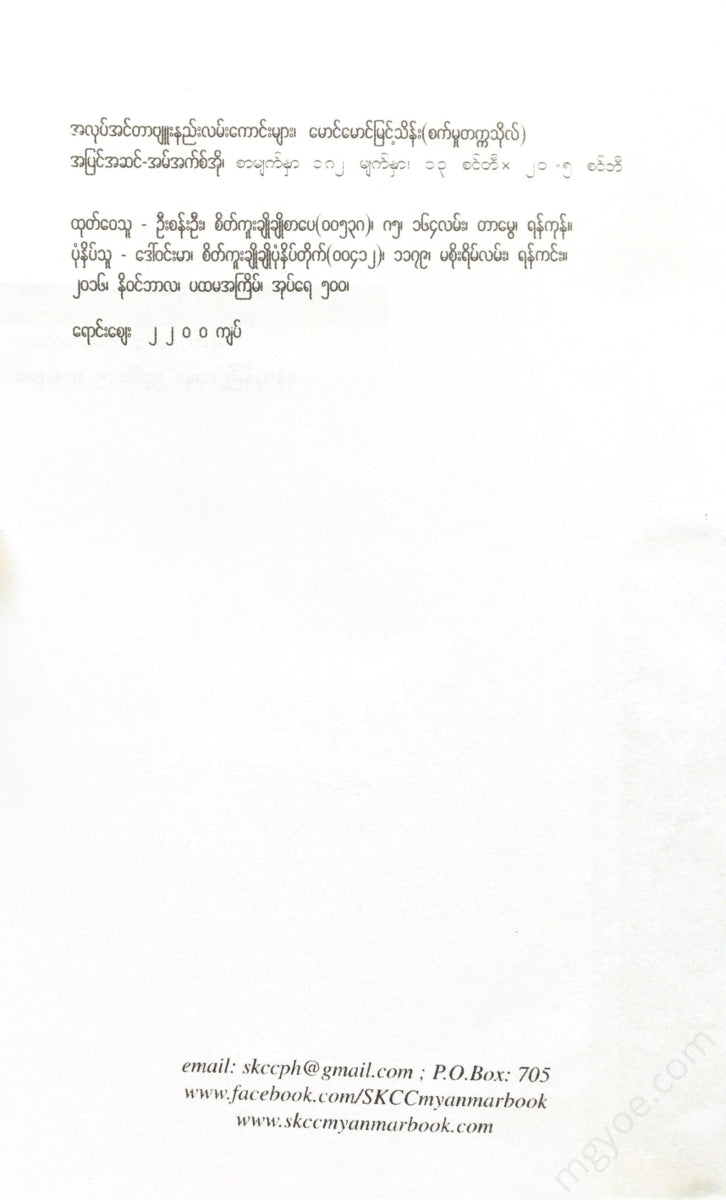 အလုပ်အင်တာဗျူးနည်းလမ်းကောင်းများ၊ မောင်မောင်မြင့်သိန်း(စက်မှုတက္ကသိုလ်)
အပြင်အဆင်-အမ်အက်စ်အို၊ စာမျက်နှာ ၁၈၂ မျက်နှာ၊ ၁၃ စင်တီ× ၂၁.၅ စင်တီ
ထုတ်ဝေသူ - ဦးစန်းဦး၊ စိတ်ကူးချိုချိုစာပေ(၀၀၅၃၈)၊ ၈၅၊ ၁၆၄လမ်း၊ တာမွေ၊ ရန်ကုန်။
ပုံနှိပ်သူ - ဒေါ်ဝင်းမာ၊ စိတ်ကူးချိုချိုပုံနှိပ်တိုက်(၀၀၄၁၂)၊ ၁၁၇၉၊ မစိုးရိမ်လမ်း၊ ရန်ကင်း။
၂၀၁၆၊ နိုဝင်ဘာလ၊ ပထမအကြိမ်၊ အုပ်ရေ ၅၀၀၊
ရောင်းဈေး ၂ ၂ ၀ ၀ ကျပ်
email: skccph@gmail.com ; P.O.Box: 705
www.facebook.com/SKCCmyanmarbook
www.skccmyanmarbook.com
mgyoe.com